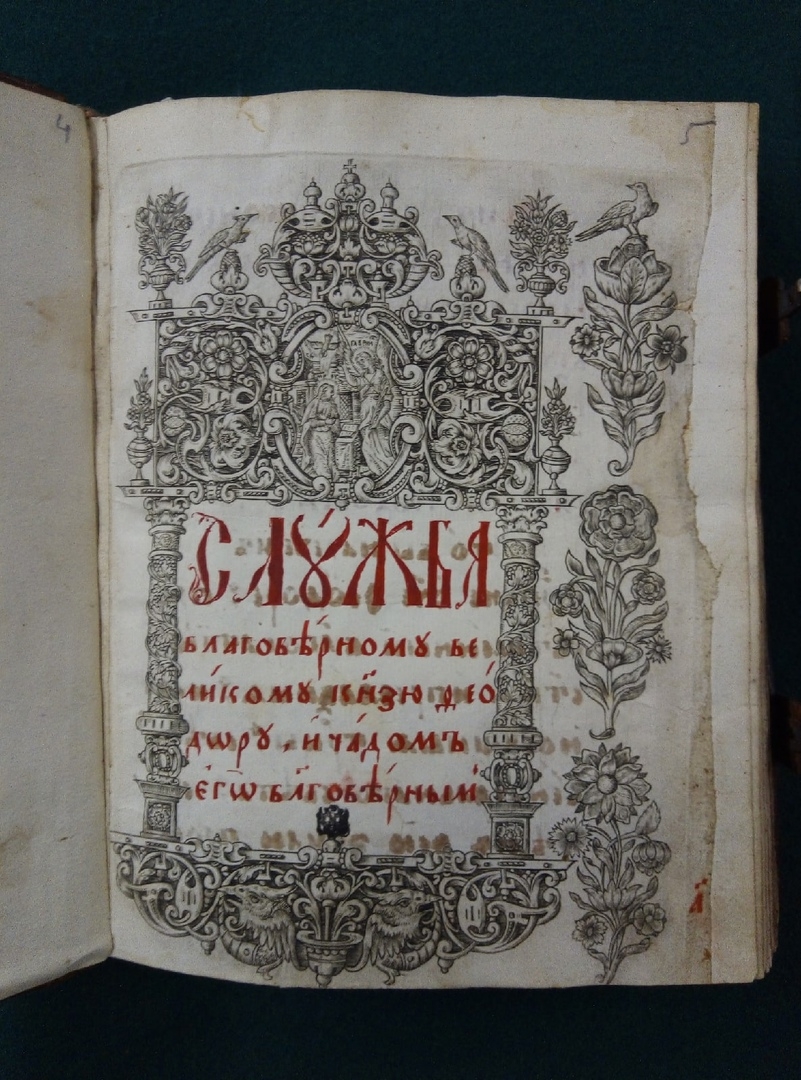 4
5
СЛꙋ́ЖБА
благовѣ́рномꙋ ве
ли́комꙋ кн҃зю ѳео́
дѡрꙋ, и҆ ча́домъ
є҆гѡ̀ бл҃говѣ́рным
а҃